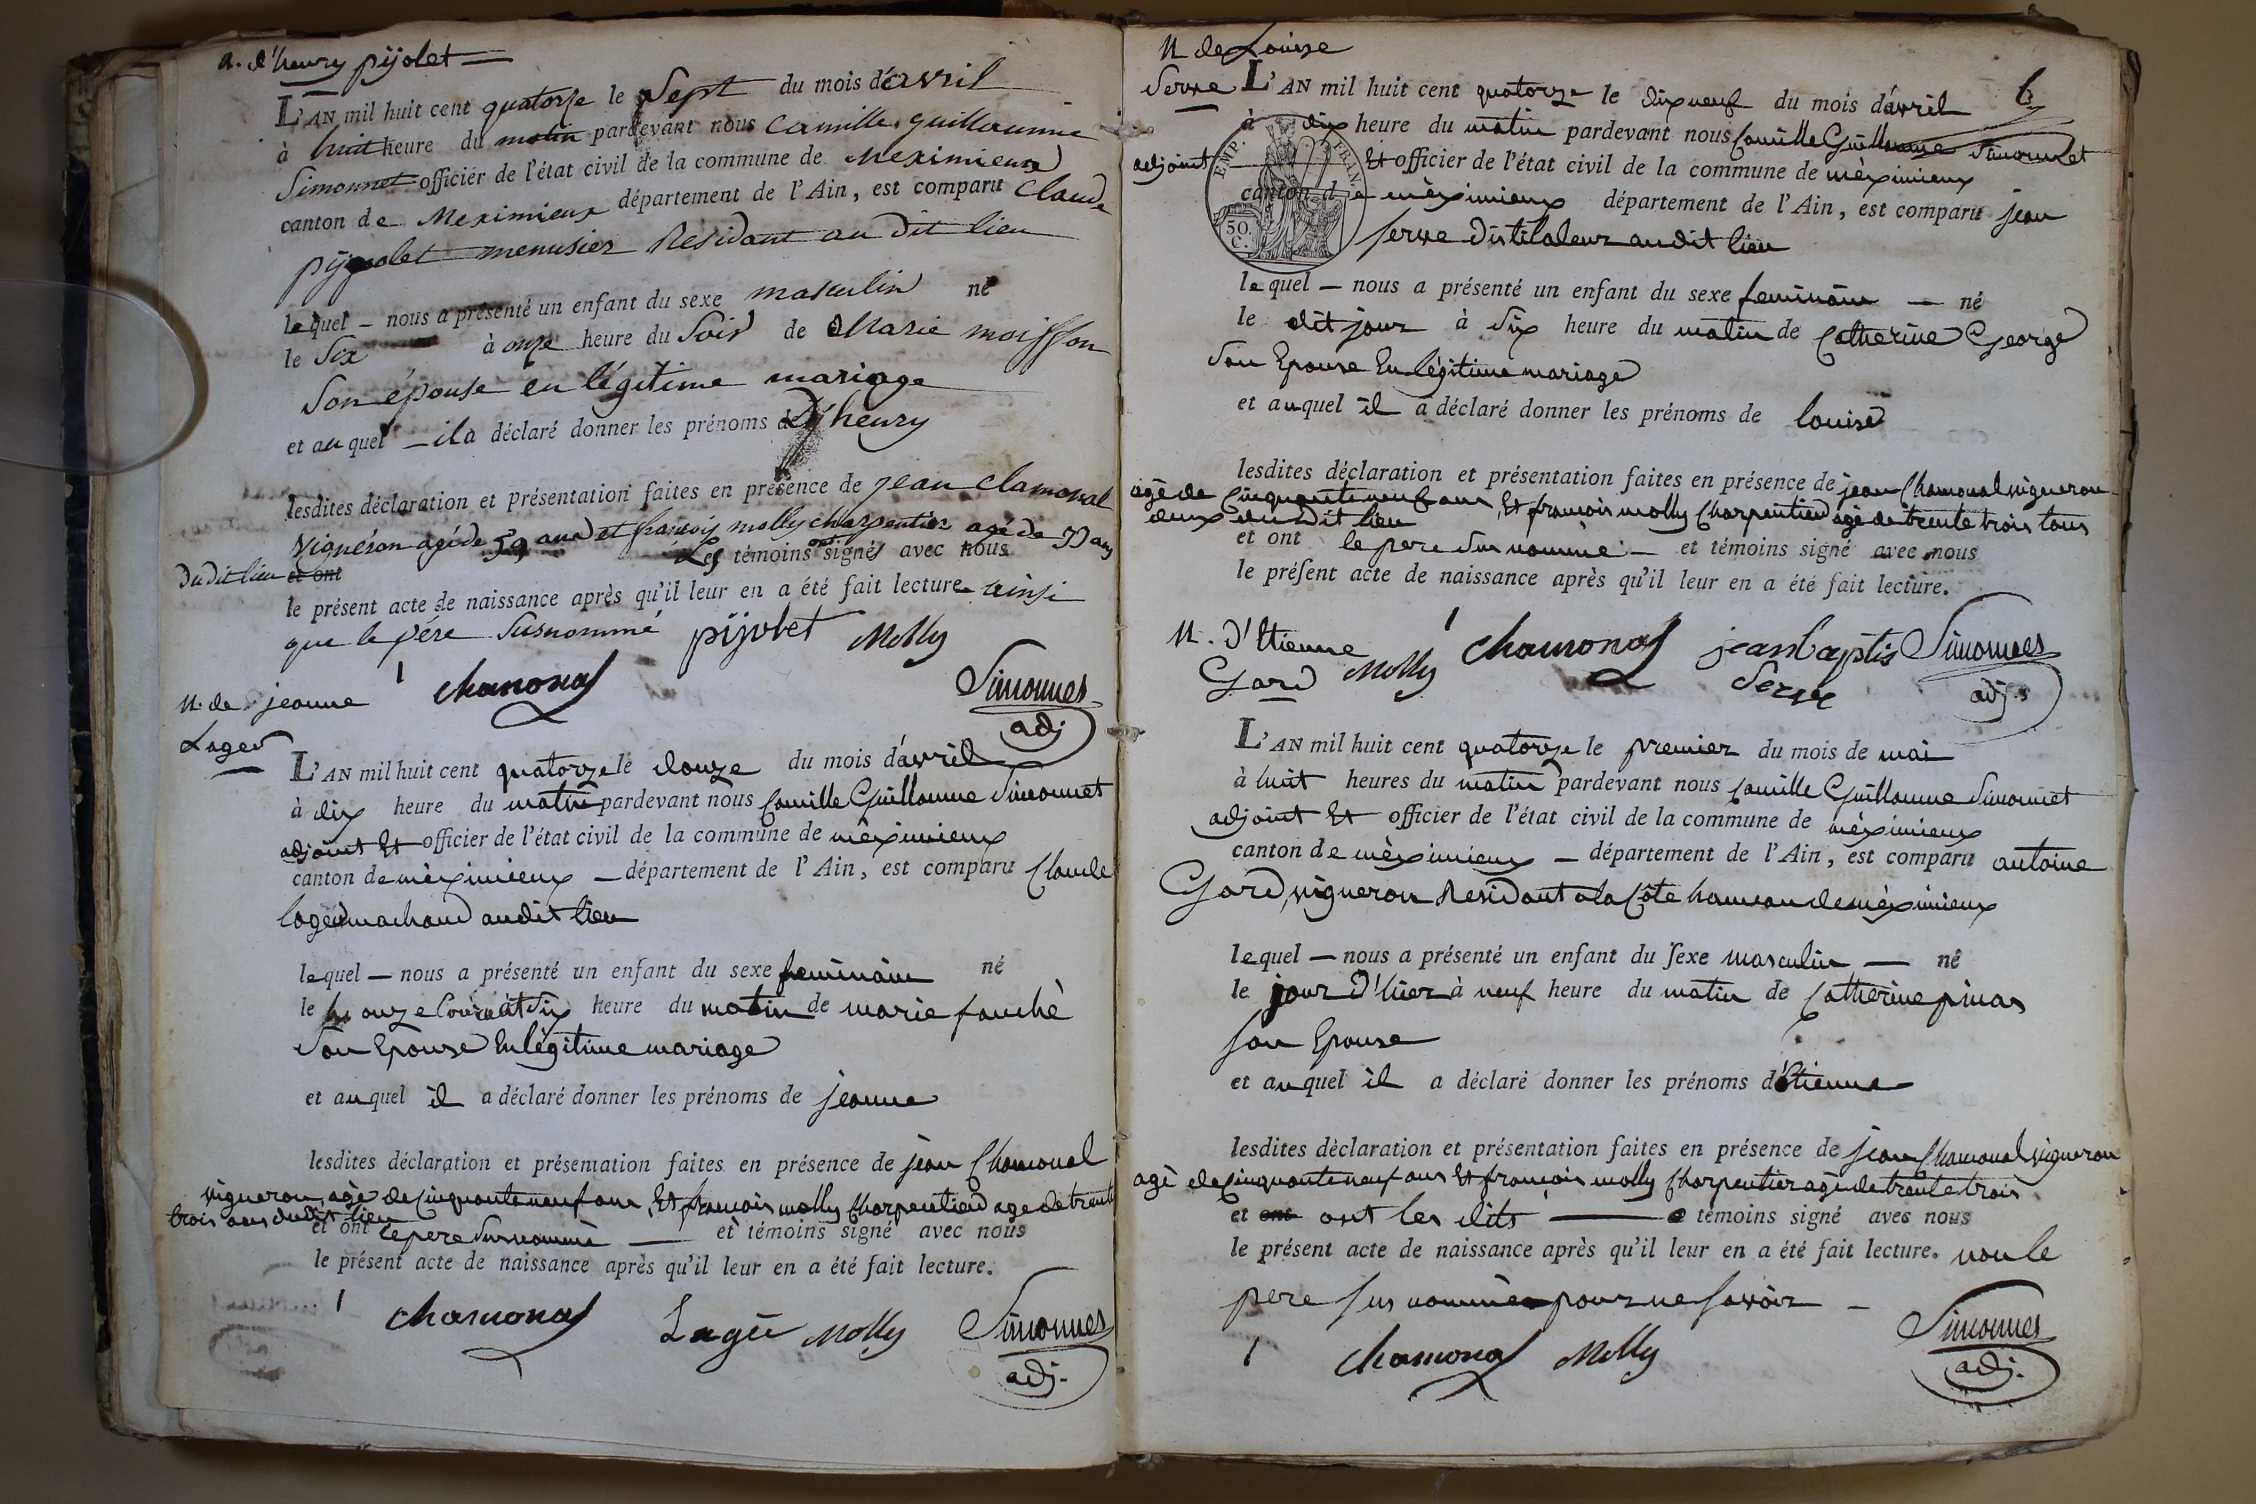 n. d'henry pijolet
L'AN mil huit cent quatorze le Sept du mois d'avril
à huit heure du matin pardevant nous Camille guillaume
Simonnet officier de l'état civil de la commune de Meximieux
canton de Meximieux département de l'Ain, est comparu Claude
pijolet menusier Residant au dit lieu
lequel nous a présenté un enfant du sexe masculin né
le Six à onze heure du Soir de Marie moisson
Son épouse en légitime mariage
et auquel il a déclaré donner les prénoms d'henry
lesdites déclaration et présentation faites en présence de jean Clamonal
Vigneron agé de 59 ans et francois molly charpentier agé de 33 ans
Du dit lieu et ont Les témoins ont signés avec nous
le présent acte de naissance après qu'il leur en a été fait lecture ainsi
que le père Susnommé pijolet Molly
chamonal Simonnet
adj
N. de jeanne
Lager
L'AN mil huit cent quatorze le douze du mois d'avril
à dix heure du matin pardevant nous Camille Guillaume Simonnet
adjoint Et officier de l'état civil de la commune de mèximieux
canton de mèximieux département de l'Ain, est comparu Claude
lager machand audit lieu
lequel nous a présenté un enfant du sexe feminain né
le onze Courant à Six heure du matin de marie fouchè
Son Epouse En légitime mariage
et auquel il a déclaré donner les prénoms de jeanne
lesdites déclaration et présentation faites en présence de jean Chamonal
vigneron, agè de Cinquante neuf ans, Et francois molly Charpentier age de trente
trois ans dudit lieu
et ont le pere Surnommè et témoins signé avec nous
le présent acte de naissance après qu'il leur en a été fait lecture.
chamonal Lagér Molly Simonnet
adj.
N. de Louise
Serve L'AN mil huit cent quatorze le dix neuf du mois d'avril
à dix heure du matin pardevant nous Camille Guillaume Simonnet
adjoint Et officier de l'état civil de la commune de mèximieux
canton de mèximieux département de l'Ain, est comparu jean
Serve Distilateur audit lieu
EMP. FRAN.
50.
C.
lequel nous a présenté un enfant du sexe feminain né
le dit jour à Six heure du matin de Catherine George
Son Epouse En légitime mariage
et auquel il a déclaré donner les prénoms de louise
lesdites déclaration et présentation faites en présence de jean Chamonal vigneron
agè de Cinquante neuf ans, Et francois molly Charpentier agè de trente trois tous
deux dudit lieu
et ont le pere Sus nommè et témoins signé avec nous
le présent acte de naissance après qu'il leur en a été fait lecture.
Molly chamonal jean baptis Simonnet
Serve adj.
N. D'Etienne
Gard
L'AN mil huit cent quatorze le premier du mois de mai
à huit heures du matin pardevant nous Camille Guillaume Simonnet
adjoint Et officier de l'état civil de la commune de mèximieux
canton de mèximieux département de l'Ain, est comparu antoine
Gard, vigneron Residant à la Côte hameau de mèximieux
lequel nous a présenté un enfant du sexe masculin né
le jour D'hier à neuf heure du matin de Catherine pinas
son Epouse
et auquel il a déclaré donner les prénoms d'Etienne
lesdites déclaration et présentation faites en présence de jean Chamonal vigneron
agè de Cinquante neuf ans Et francois molly Charpentier agè de trente trois
et ont ont les dits témoins signé avec nous
le présent acte de naissance après qu'il leur en a été fait lecture. non le
pere sus nommè pour ne savoir
chamonal Molly Simonnet
adj.